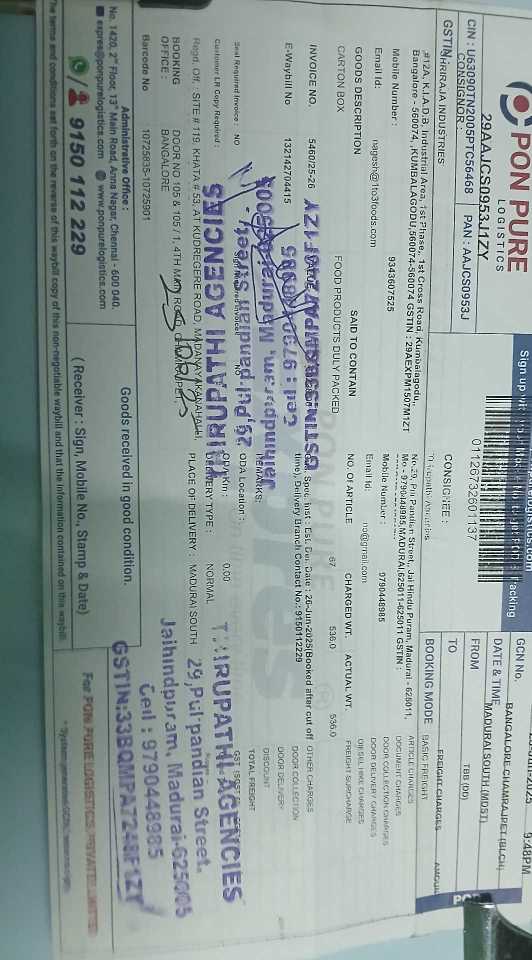 PON PURE
LOGISTICS
29AAJCS0953J1ZY
CIN : U63090TN2005PTC56468 PAN : AAJCS0953J
01126732601137
GCN No.
DATE & TIME 9:48PM
BANGALORE CHAMRAJPET (BLCH)
FROM
MADURAI SOUTH (MDST)
TO
TBB (DD)
BOOKING MODE
CONSIGNOR :
GSTIN
SHRIRAJA INDUSTRIES
#12A, K.I.A.D.B. Industrial Area, 1st Phase, 1st Cross Road, Kumbalagodu,,
Bangalore - 560074, KUMBALAGODU,560074-560074 GSTIN : 29AEXPM1507M1ZT
Mobile Number : 9343607525
Email Id: nagesh@1to3foods.com
CONSIGNEE :
No-29, Puli Pandian Street,, Jai Hindu Puram, Madurai - 625011,
Mo - 9790448985,MADURAI,625011-625011 GSTIN :
Mobile Number : 9790448985
Email Id: no@gmail.com
GOODS DESCRIPTION SAID TO CONTAIN NO. OF ARTICLE CHARGED WT. ACTUAL WT.
CARTON BOX FOOD PRODUCTS DULY PACKED 67 536.0 536.0
INVOICE NO. 5450/25-26
E-Waybill No 132142704415
Est. Del. Date : 26-Jun-2025(Booked after cut off
time), Delivery Branch Contact No.: 9150112229
REMARKS:
Seal Required Invoice : NO
Customer LR Copy Required : NO
ODA Location :
ODA Km: 0.00
Regd. Off. : SITE # 119, KHATA # 53, AT KUDREGERE ROAD, MADANAYAKANAHALLI,
DELIVERY TYPE : NORMAL
BOOKING OFFICE : DOOR NO 105 & 105 / 1, 4TH MAIN ROAD, CHAMRAJPET,
BANGALORE
PLACE OF DELIVERY : MADURAI SOUTH
Barcode No 10725835-10725901
FREIGHT CHARGES AMOUNT
BASIC FREIGHT
ARTICLE CHARGES
DOCUMENT CHARGES
DOOR COLLECTION CHARGES
DOOR DELIVERY CHARGES
DIESEL HIKE CHARGES
FREIGHT SURCHARGE
OTHER CHARGES
DOOR COLLECTION
DOOR DELIVERY
DISCOUNT
TOTAL FREIGHT
THIRUPATHI AGENCIES
29,Puli pandian Street,
Jaihindpuram, Madurai-625005
Cell : 9790448985
THIRUPATHI AGENCIES
29,Puli pandian Street,
Jaihindpuram, Madurai-625005
Cell : 9790448985
Administrative Office :
No. 1420, 2nd Floor, 13th Main Road, Anna Nagar, Chennai - 600 040.
expres@ponpurelogistics.com www.ponpurelogistics.com
9150 112 229
Goods received in good condition.
( Receiver : Sign, Mobile No., Stamp & Date)
For PON PURE LOGISTICS PRIVATE LIMITED
The terms and conditions set forth on the reverse of this waybill copy of this non-negotiable waybill and that the information contained on this waybill